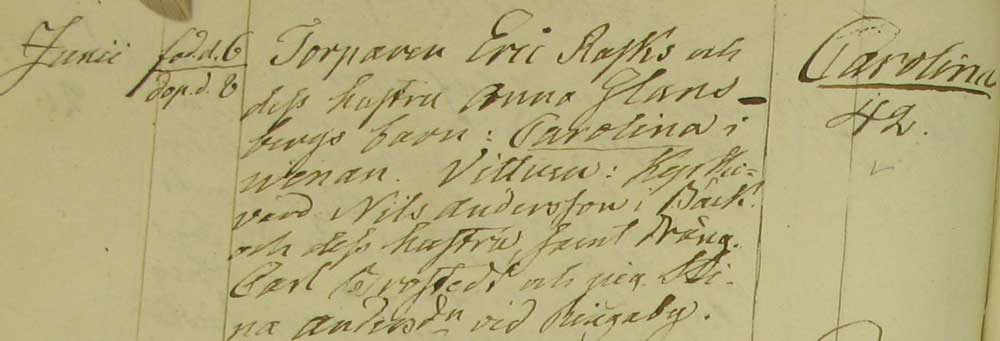 Junii
föd.d. 6
döp.d. 8
Torparen Eric Rasks och
dess hustru Anna Glans-
bergs barn: Carolina i
Wenan. Vittnen: Kyrkie-
värd Nils Andersson i Bäck
och dess hustru, samt Dräng.
Carl Brostedt och pig. Sti-
na Andersdn vid Ringaby.
Carolina
42.